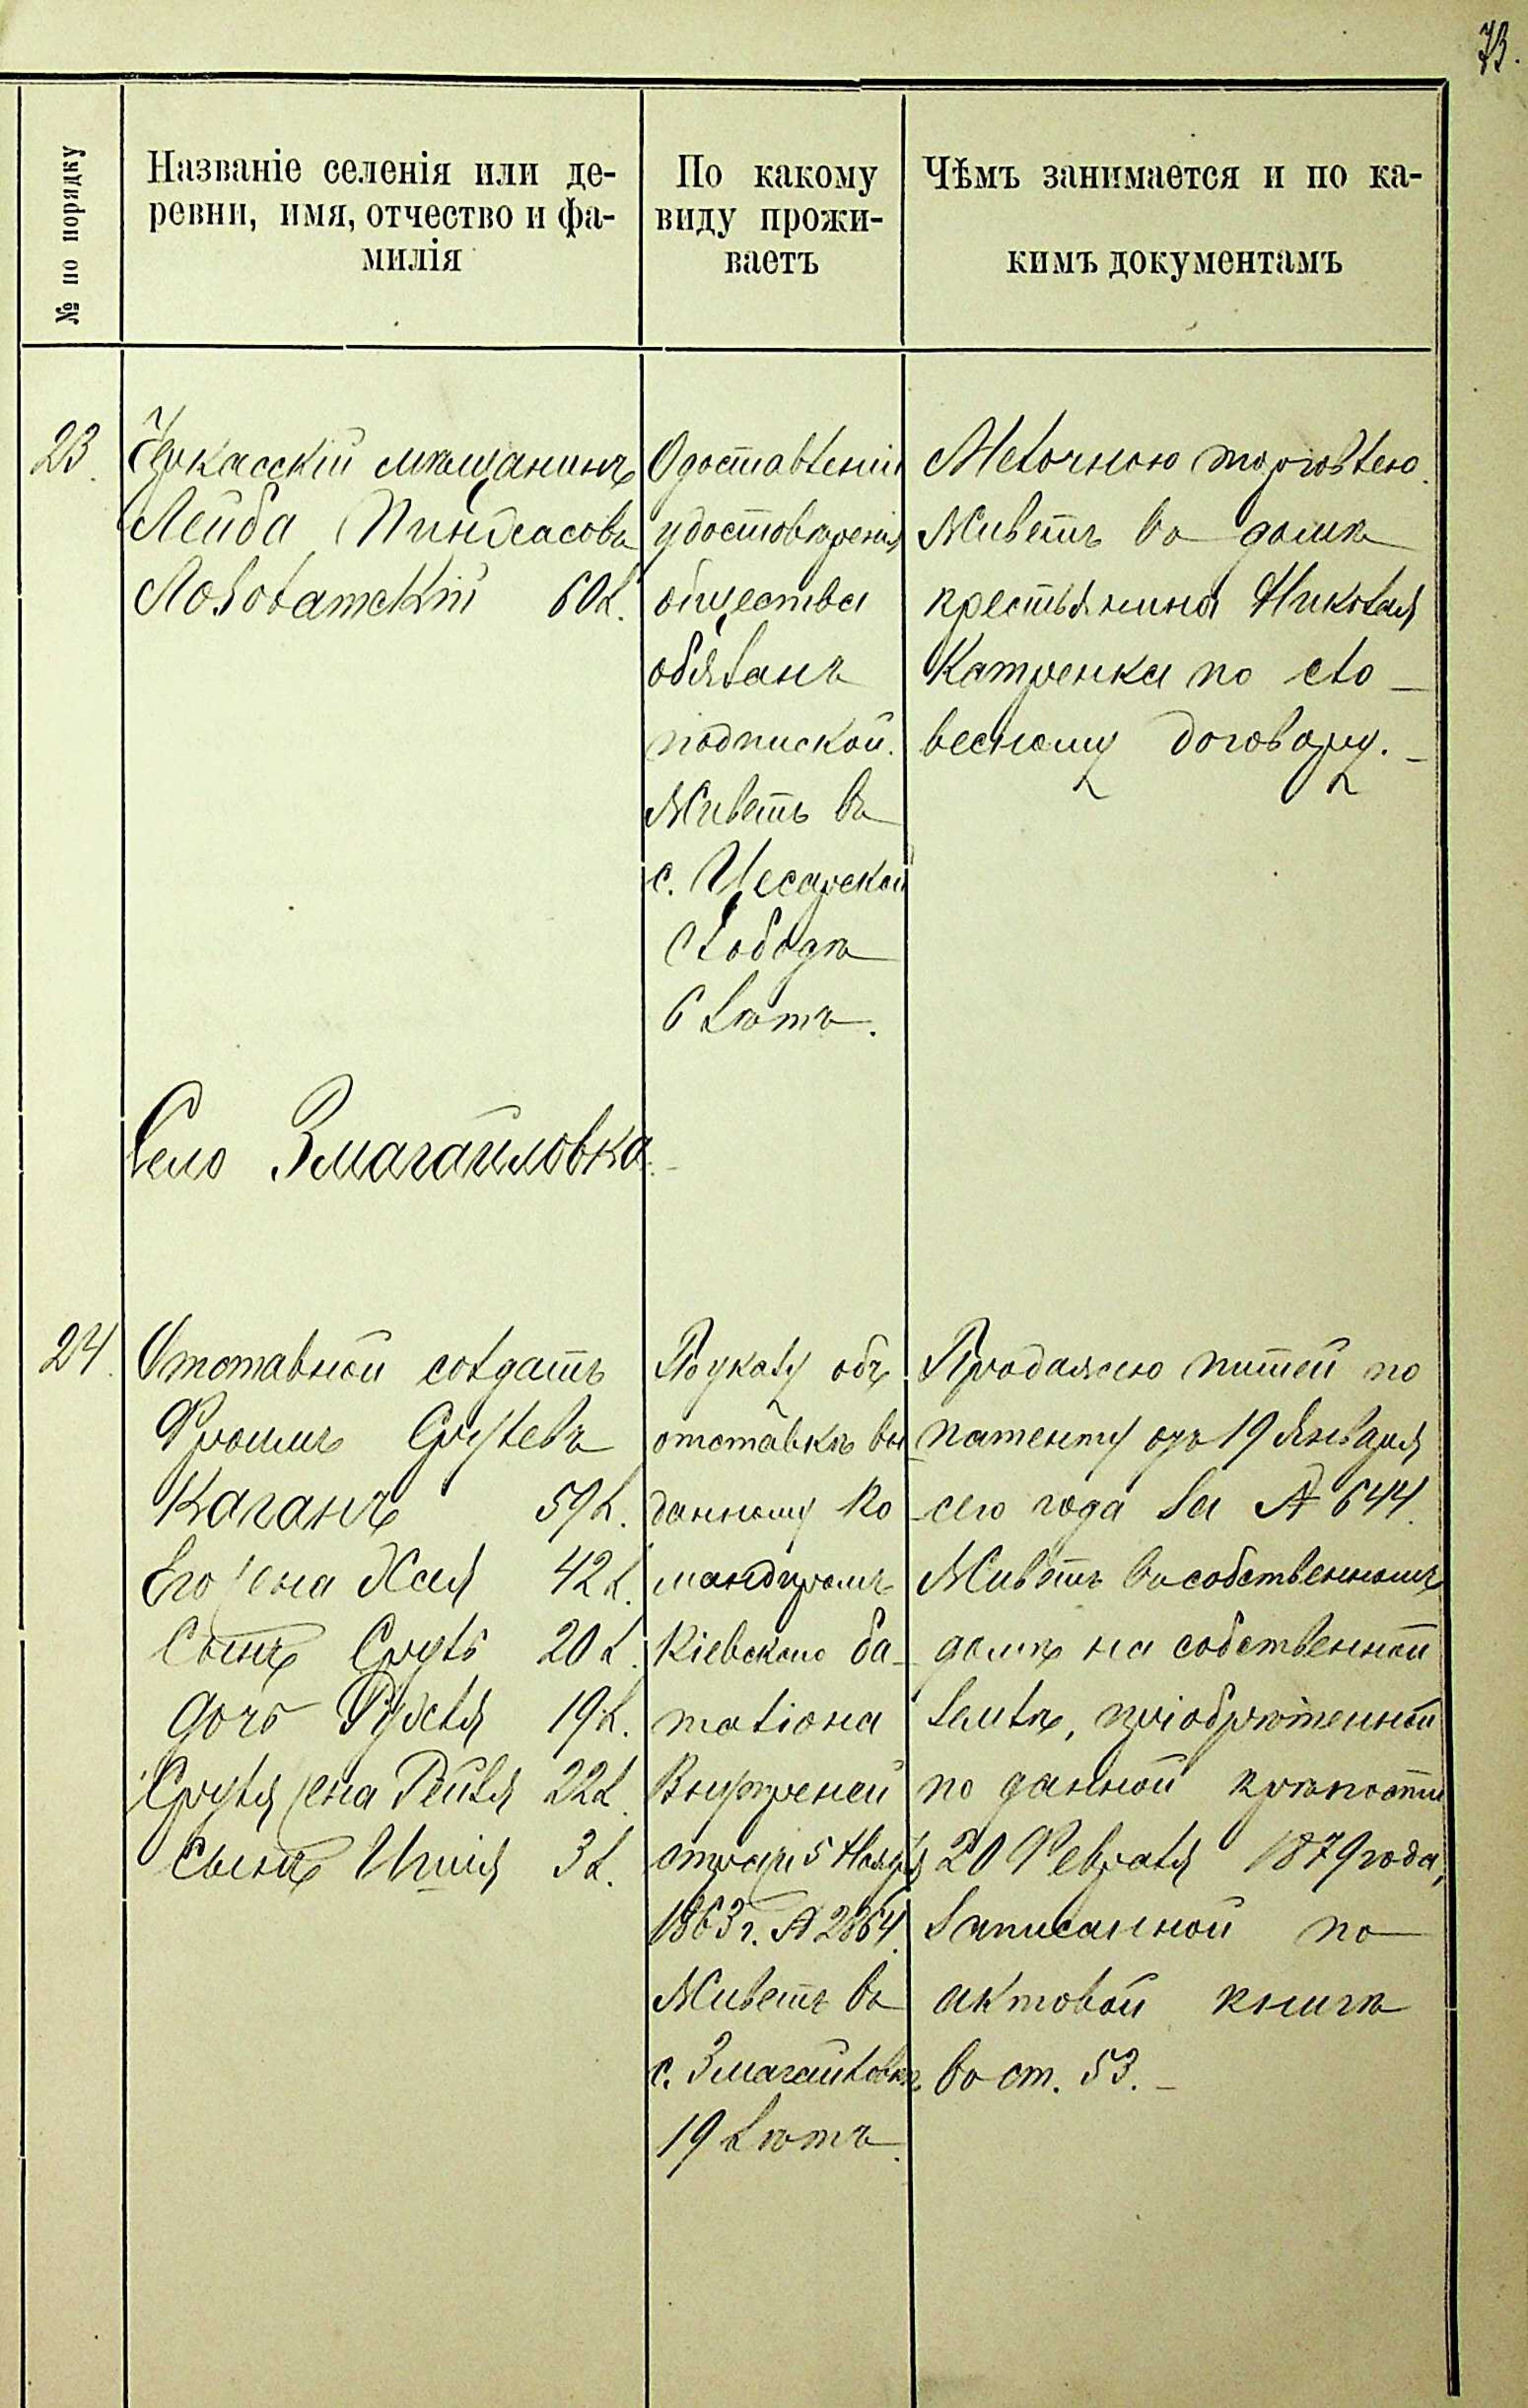 73.
№ по порядку
Названіе селенія или де-
ревни, имя, отчество и фа-
милія
По какому
виду прожи-
ваетъ
Чѣмъ занимается и по ка-
кимъ документамъ
23.
Черкасскій мѣщанинъ
Лейба Пинхасовъ
Лозоватскій 60 л.
О доставленіи
удостовѣренія
общества
обязанъ
подпиской.
Живетъ въ
с. Цесарской
Слободѣ
6 лѣтъ.
Мелочною торговлею.
Живетъ въ домѣ
крестьянина Николая
Катренка по сло-
весному договору.
Село Змагайловка.
24.
Отставной солдатъ
Фроимъ Срулевъ
Каганъ 59 л.
Его жена Хая 42 л.
Сынъ Сруль 20 л.
дочь Рухля 19 л.
Сруля жена Рейзя 22 л.
Сынъ Ицыя 3 л.
По указу объ
отставкѣ вы
данному ко
мандиромъ
Кіевского ба-
таліона
Внутреней
стражи 5 Ноября
1863 г. № 2864.
Живетъ въ
с. Змагайловкѣ
19 лѣтъ.
Продажею питей по
патенту отъ 19 Января
сего года за № 644.
Живетъ въ собственномъ
домѣ на собственной
землѣ, пріобрѣтенной
по данной крѣпости
20 Февраля 1879 года,
записанной по
актовой книгѣ
въ ст. 53.